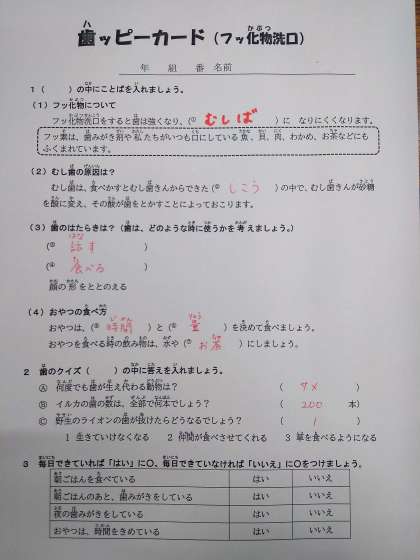 歯ッピーカード(フッ化物洗口)
年 組 番 名前
1( )の中にことばを入れましょう。
(1)フッ化物について
フッ化物洗口をすると歯は強くなり、(① むしば )に なりにくくなります。
フッ素は、歯みがき剤や私たちがいつも口にしている魚、貝、肉、わかめ、お茶などにも
ふくまれています。
(2)むし歯の原因は?
むし歯は、食べかすとむし歯きんからできた(② しこう )の中で、むし歯きんが砂糖
を酸に変え、その酸が歯をとかすことによっておこります。
(3)歯のはたらきは?(歯は、どのような時に使うかを考えましょう。)
(③ 話す )
(④ 食べる )
顔の形をととのえる
(4)おやつの食べ方
おやつは、(⑤ 時間 )と(⑥ 量 )を決めて食べましょう。
おやつを食べる時の飲み物は、水や(⑦ お茶 )にしましょう。
2 歯のクイズ( )の中に答えを入れましょう。
Ⓐ 何度でも歯が生え代わる動物は? ( サメ )
Ⓑ イルカの歯の数は、全部で何本でしょう? ( 200 本)
Ⓒ 野生のライオンが歯が抜けたらどうなるでしょう? ( 1 )
1 生きていけなくなる 2 仲間が食べさせてくれる 3 草を食べるようになる
3 毎日できていれば「はい」に○、毎日できていなければ「いいえ」に○をつけましょう。
朝ごはんを食べている はい いいえ
朝ごはんのあと、歯みがきをしている はい いいえ
夜の歯みがきをしている はい いいえ
おやつは、時間をきめている はい いいえ